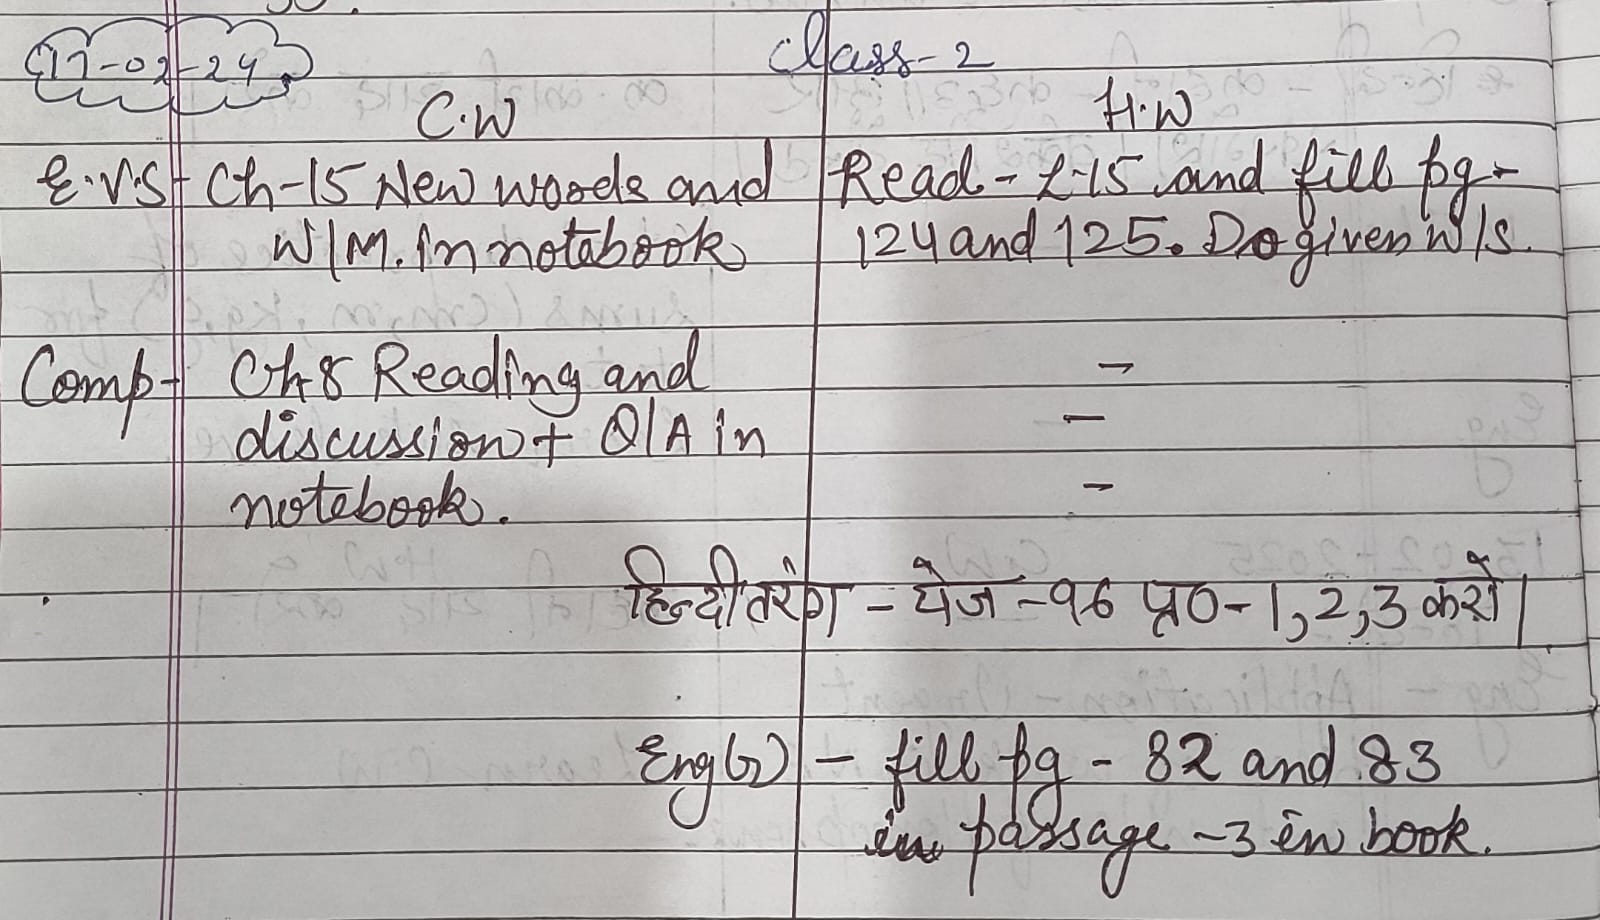 17-02-24
Class-2
C.W
H.W
E.V.S - Ch-15 New words and
W/M. in notebook
Read - L-15 and fill pg-
124 and 125. Do given W/S.
Comp - Ch 8 Reading and
discussion + Q/A in
notebook.
-
-
-
हिन्दी तरंग - पेज - 96 प्र०- 1, 2, 3 करो।
Eng(G) - fill pg - 82 and 83
in passage - 3 in book.